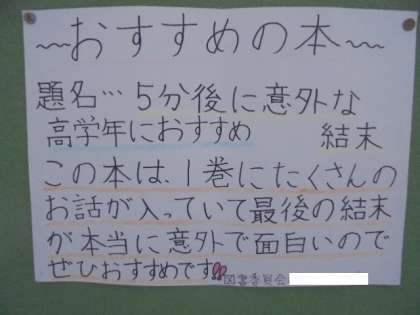 ～おすすめの本～
題名…5分後に意外な
高学年におすすめ 結末
この本は、1巻にたくさんの
お話が入っていて最後の結末
が本当に意外で面白いので
ぜひおすすめです!!
図書委員会